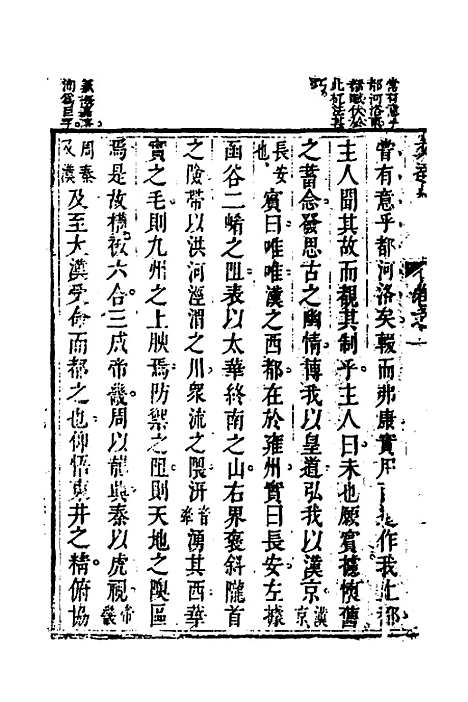 嘗有意乎都河洛矣輟而弗康實用 作我上都
主人聞其故而覩其制乎主人曰未也願賓攄懷舊
之蓄念發思古之幽情博我以皇道弘我以漢京漢京
長安也賓曰唯唯漢之西都在於雍州實曰長安左據
函谷二崤之阻表以太華終南之山右界褒斜隴首
之險帶以洪河涇渭之川衆流之隈汧音牽湧其西華
實之毛則九州之上腴焉防禦之阻則天地之隩區
焉是故橫被六合三成帝畿周以龍興秦以虎視帝畿
周秦及漢及至大漢受命而都之也仰悟東井之精俯協